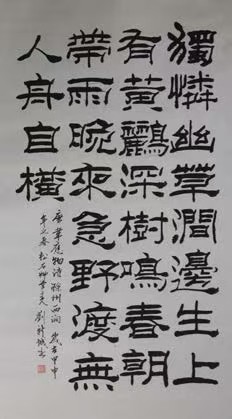 獨憐幽草澗邊生上
有黃鸝深樹鳴春朝
帶雨晚來急野渡無
人舟自橫
唐韋應物詩滁州西澗 歲在甲申
年之春松石 劉